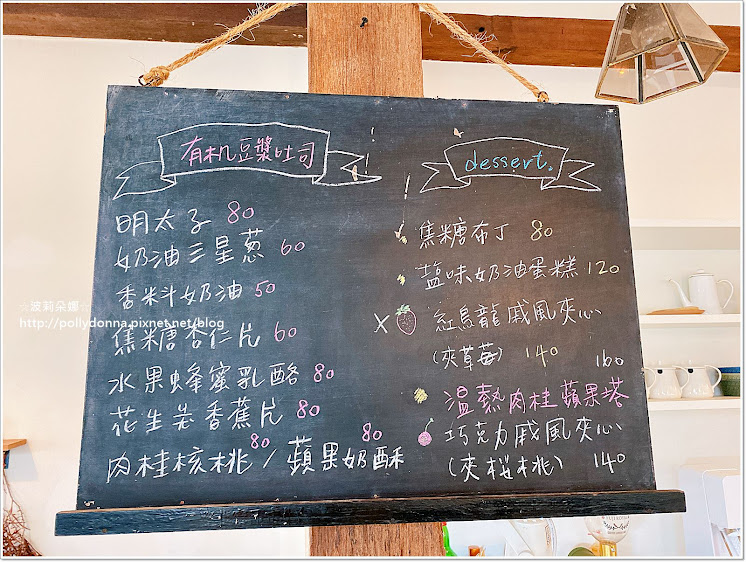 有机豆漿吐司
明太子 80
奶油三星蔥 60
香料奶油 50
焦糖杏仁片 60
水果蜂蜜乳酪 80
花生芝香蕉片 80
80 80
肉桂核桃/蘋果奶酥
dessert.
焦糖布丁 80
塩味奶油蛋糕 120
X 紅烏龍戚風夾心
(夾草莓) 140
160
溫熱肉桂蘋果塔
巧克力戚風夾心
(夾桜桃) 140
☆波莉朵娜☆
http://pollydonna.pixnet.net/blog